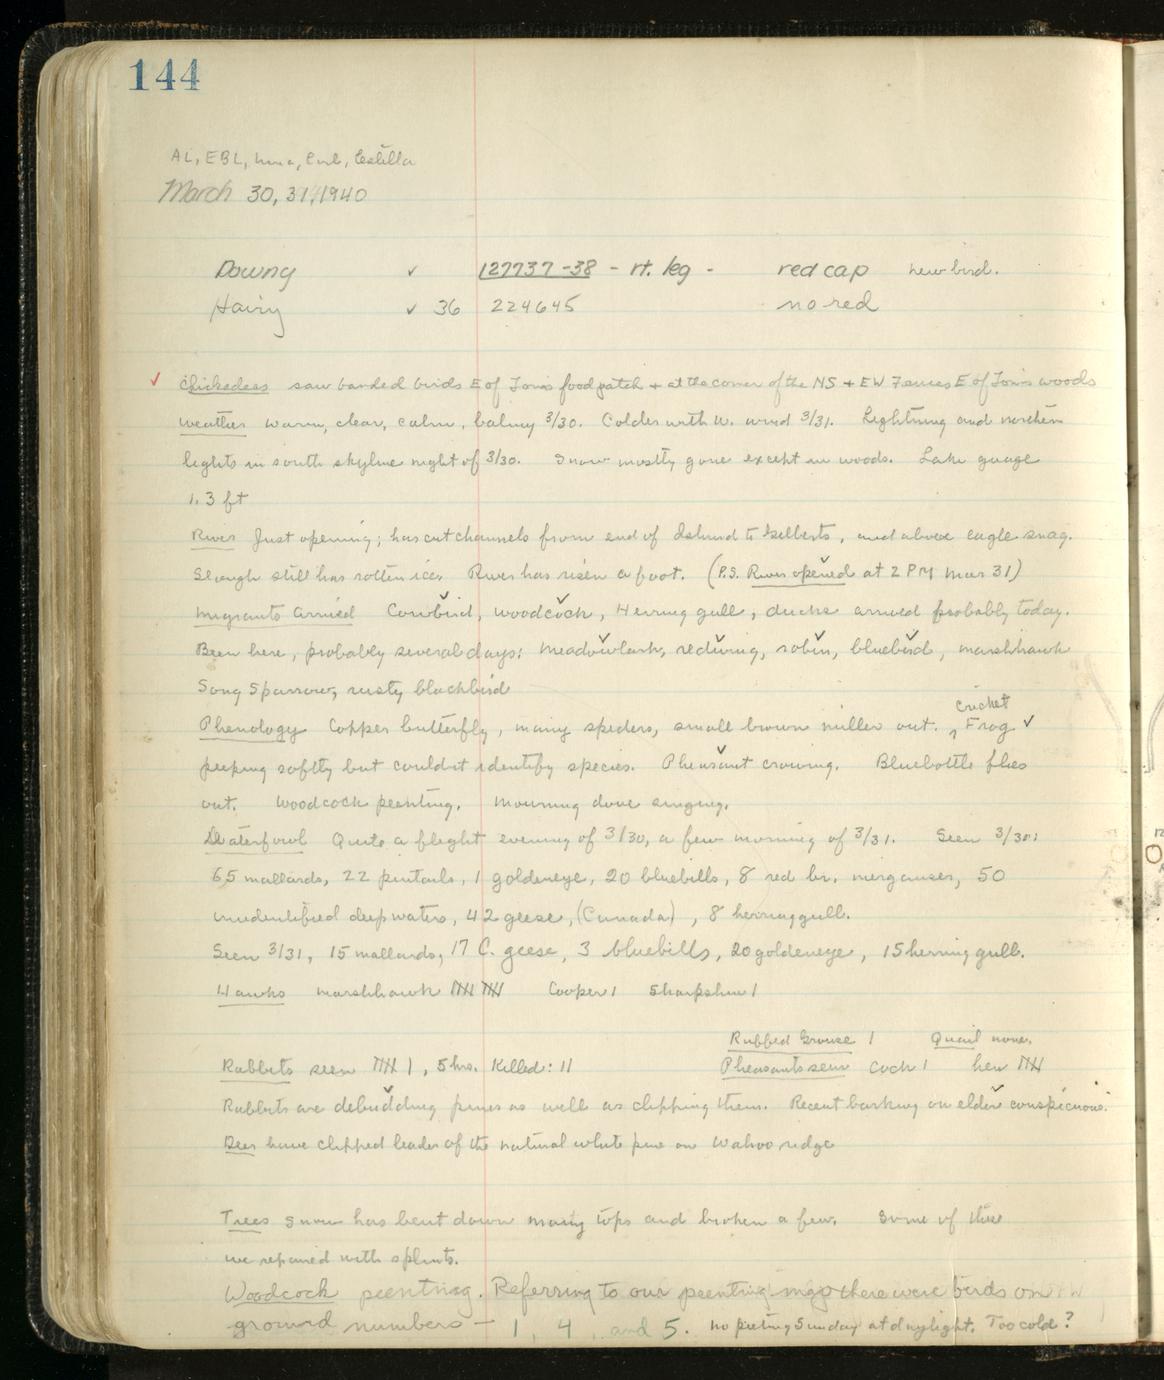 144
AL, EBL, Nina, Carl, Estella
March 30, 31, 1940
Downy ✓ 127737-38 - rt. leg - red cap new bird.
Hairy ✓ 36 224645 no red
✓ Chickadees saw banded birds E of Tom's food patch + at the corner of the NS + EW Fences E of Tom's woods
Weather warm, clear, calm, balmy 3/30. Colder with W. wind 3/31. Lightning and northern
lights in south skyline night of 3/30. Snow mostly gone except in woods. Lake guage
1.3 ft
River Just opening; has cut channels from end of Island to Gilberts, and above eagle snag.
Slough still has rotten ice. River has risen a foot. (P.S. River opened at 2 PM Mar 31)
Migrants arrived Cowbird, woodcock, Herring gull, ducks arrived probably today.
Been here, probably several days: Meadowlark, redwing, robin, bluebird, marshhawk
Song Sparrow, rusty blackbird
Cricket
Phenology Copper butterfly, many spiders, small brown miller out. ^ Frog ✓
peeping softly but couldn't identify species. Pheasant crowing. Bluebottle flies
out. Woodcock peenting. Mourning dove singing.
Waterfowl Quite a flight evening of 3/30, a few morning of 3/31. Seen 3/30:
65 mallards, 22 pintails, 1 goldeneye, 20 bluebills, 8 red br. merganser, 50
unidentified deep waters, 42 geese, (Canada), 8 herring gull.
Seen 3/31, 15 mallards, 17 C. geese, 3 bluebills, 20 goldeneye, 15 herring gull.
Hawks marshhawk 𝍸 𝍸 Cooper 1 Sharpshin 1
Ruffed Grouse 1 Quail none.
Rabbits seen 𝍸 1, 5 hrs. Killed: 11 Pheasants seen Cock 1 hen 𝍸
Rabbits are debudding pines as well as clipping them. Recent barking on elder conspicuous.
Deer have clipped leader of the natural white pine on Wahoo ridge
Trees Snow has bent down many tops and broken a few. Some of these
we repaired with splints.
Woodcock peenting. Referring to our peenting map there were birds on
ground numbers — 1, 4, and 5. No peenting Sunday at daylight. Too cold?